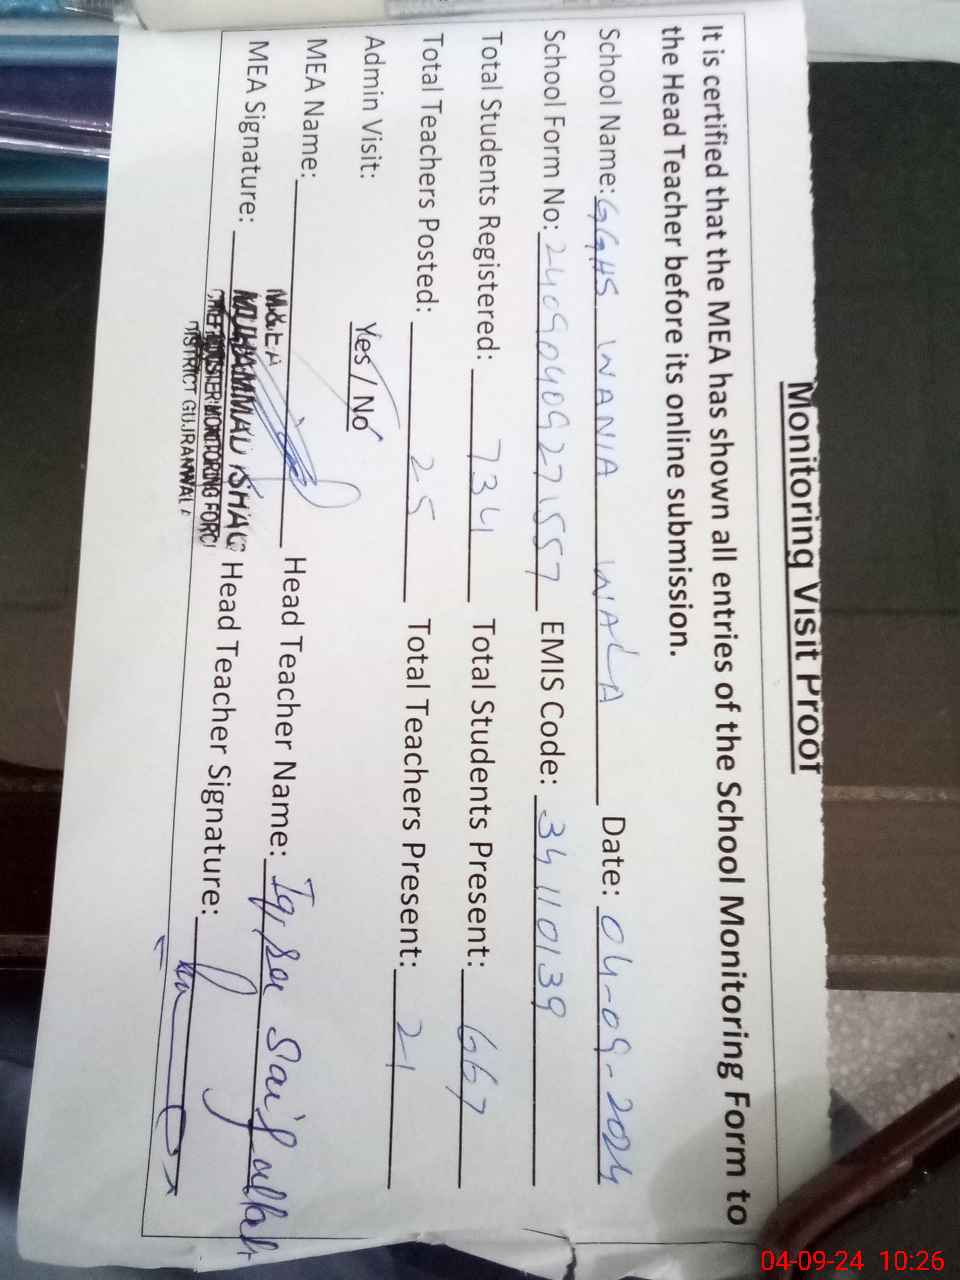 Monitoring Visit Proof
It is certified that the MEA has shown all entries of the School Monitoring Form to
the Head Teacher before its online submission.
School Name: GGHS WANIA WALA Date: 04-09-2024
School Form No: 2409040927557 EMIS Code: 34110139
Total Students Registered: 734 Total Students Present: 667
Total Teachers Posted: 25 Total Teachers Present: 21
Admin Visit: Yes / No
MEA Name: Head Teacher Name: Iqra Saifullah
MEA Signature: Head Teacher Signature:
M&EA
MUHAMMAD ISHAQ
MONITORING FORC
DISTRICT GUJRANWALA
04-09-24 10:26